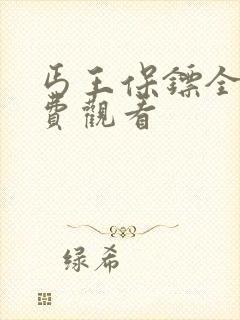 丐王保鏢全
費觀看
绿希